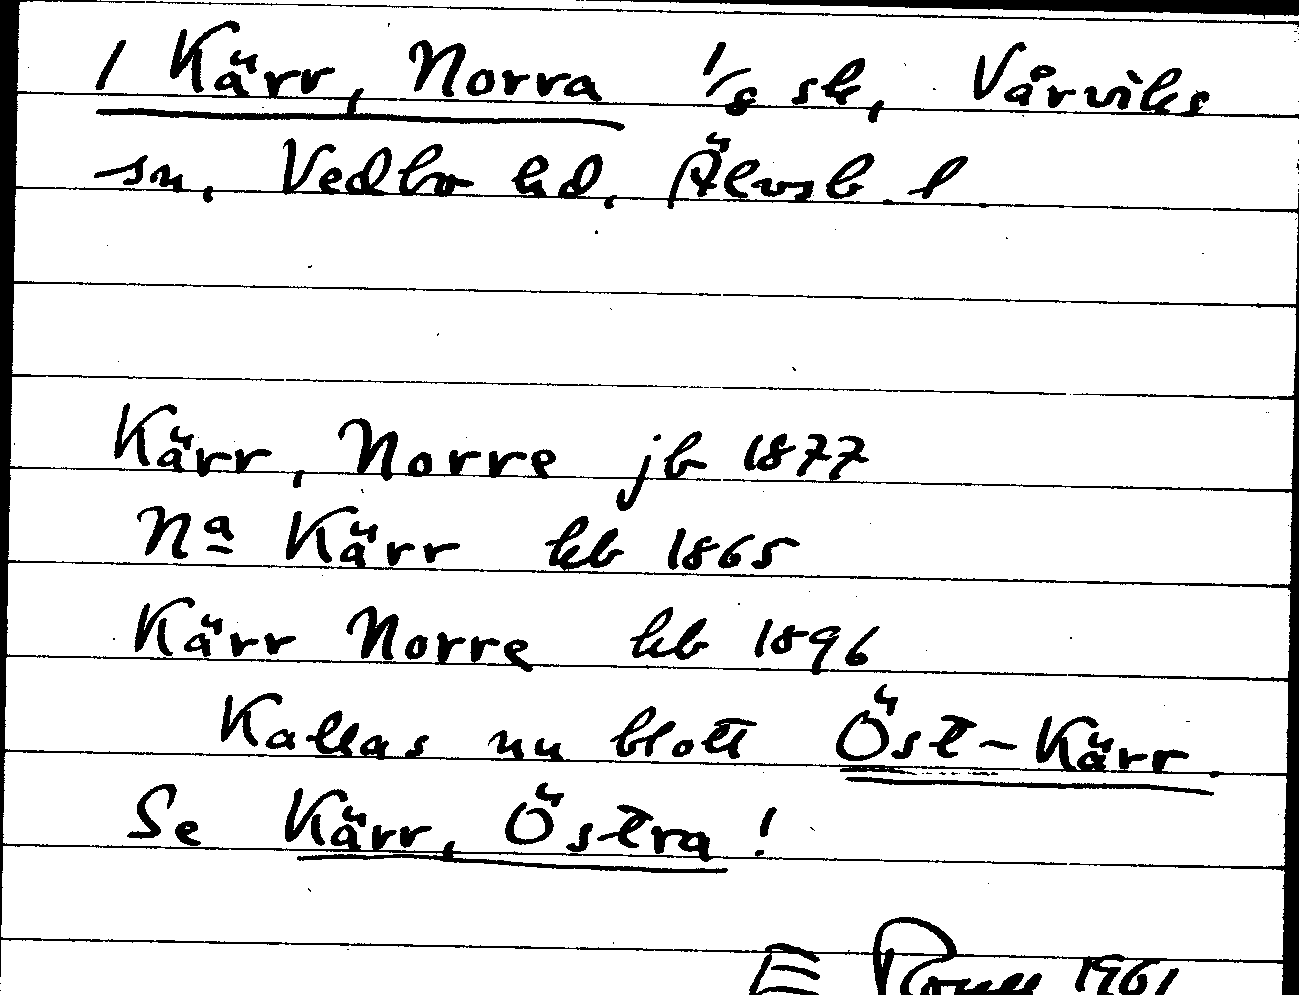 1 Kärr, Norra 1/8 sk, Vårviks
sn, Vedbo hd, Älvsb. l.
Kärr, Norre jb 1877
Nª Kärr kb 1865
Kärr Norre kb 1896
Kallas nu blott Öst-Kärr.
Se Kärr, Östra!
E 1961